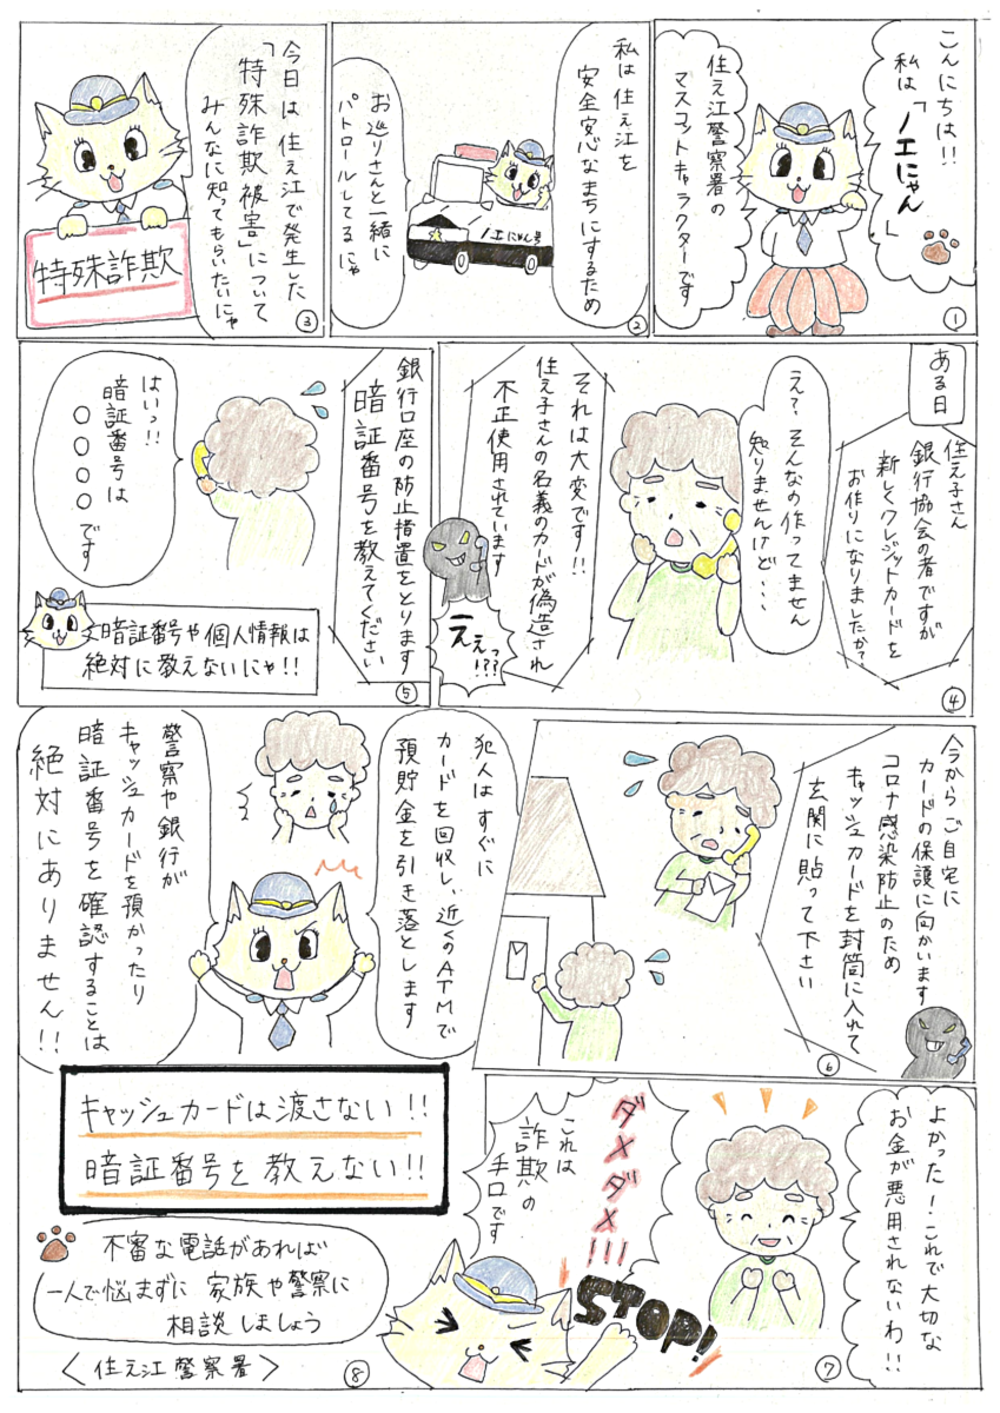 こんにちは!!
私は「ノエにゃん」
住之江警察署の
マスコットキャラクターです
①
私は住之江を
安全安心なまちにするため
お巡りさんと一緒に
パトロールしてるにゃ
ノエにゃん号
②
今日は住之江で発生した
「特殊詐欺被害」について
みんなに知ってもらいたいにゃ
特殊詐欺
③
ある日
住之子さん
銀行協会の者ですが
新しくクレジットカードを
お作りになりましたか?
え?、そんなの作ってません
知りませんけど・・・
それは大変です!!
住之子さんの名義のカードが偽造され
不正使用されています
ええっ!??
④
銀行口座の防止措置をとります
暗証番号を教えてください
はいっ!!
暗証番号は
○○○○です
暗証番号や個人情報は
絶対に教えないにゃ!!
⑤
今からご自宅に
カードの保護に向かいます
コロナ感染防止のため
キャッシュカードを封筒に入れて
玄関に貼って下さい
⑥
よかった!これで大切な
お金が悪用されないわ!!
⑦
ダメダメ!!!
これは
詐欺の
手口です
STOP!
犯人はすぐに
カードを回収し、近くのATMで
預貯金を引き落とします
警察や銀行が
キャッシュカードを預かったり
暗証番号を確認することは
絶対にありません!!
キャッシュカードは渡さない!!
暗証番号を教えない!!
不審な電話があれば
一人で悩まずに 家族や警察に
相談しましょう
〈住之江警察署〉
⑧